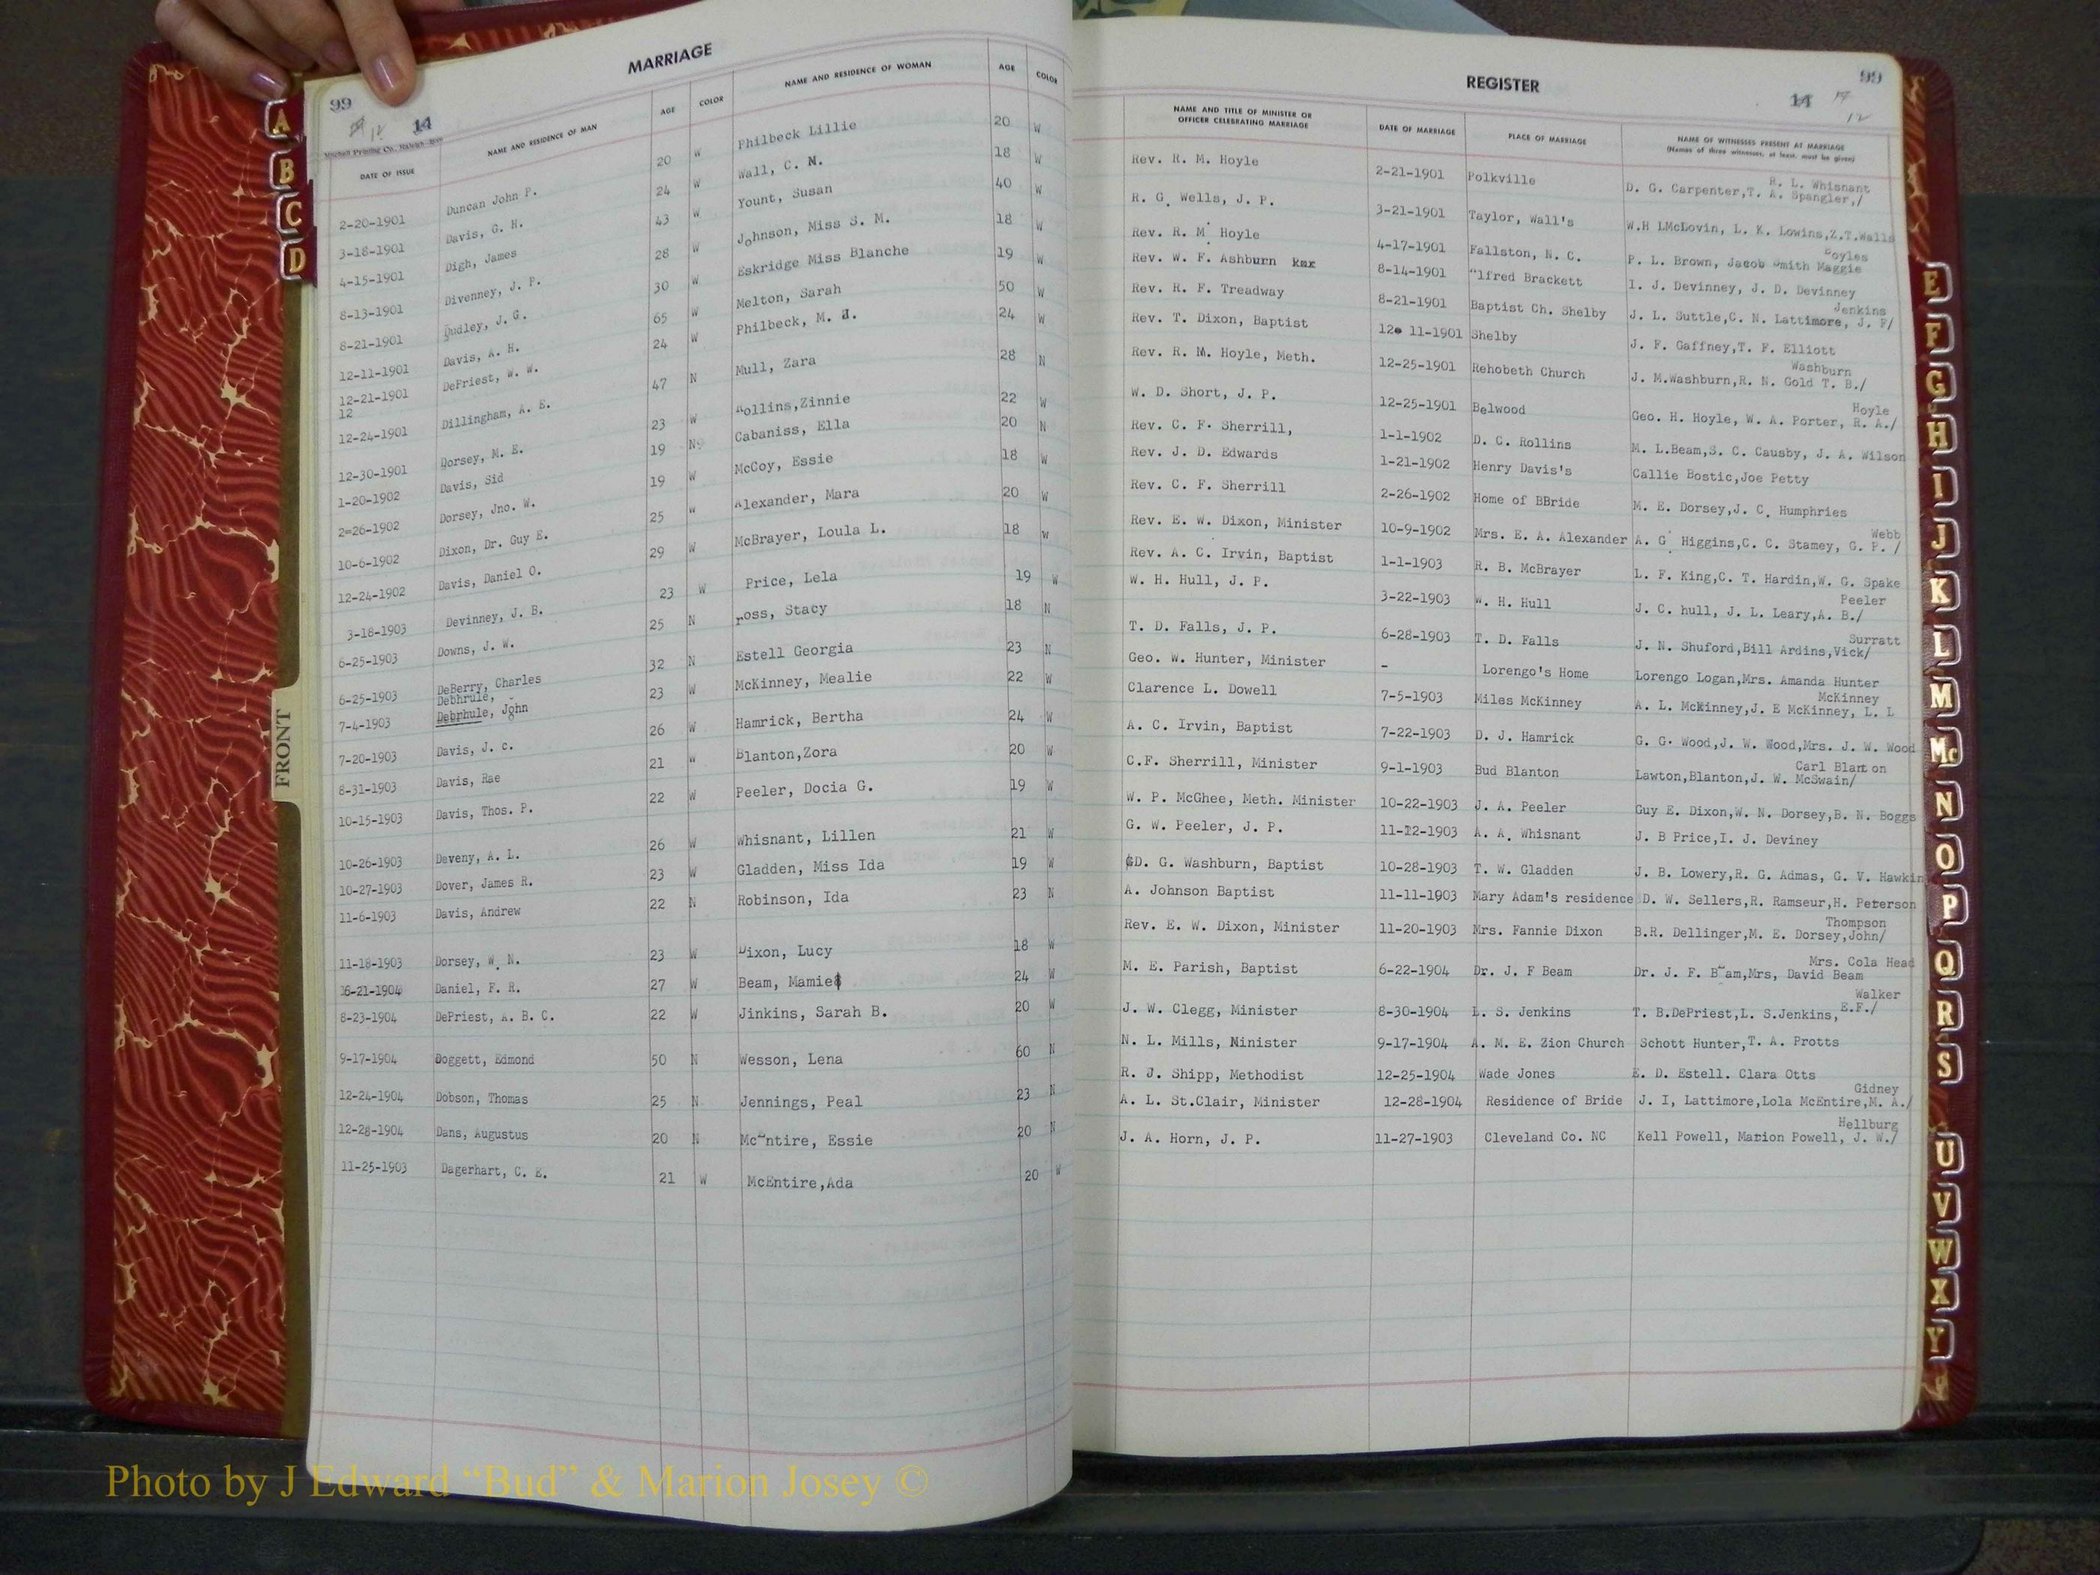 MARRIAGE
99
14
DATE OF ISSUE NAME AND RESIDENCE OF MAN AGE COLOR NAME AND RESIDENCE OF WOMAN AGE COLOR
2-20-1901 Duncan John P. 20 W Philbeck Lillie 20 W
3-18-1901 Davis, G. H. 24 W Wall, C. N. 18 W
4-15-1901 Digh, James 43 W Yount, Susan 40 W
8-13-1901 Divenney, J. P. 28 W Johnson, Miss S. M. 18 W
8-21-1901 Dudley, J. G. 30 W Eskridge Miss Blanche 19 W
12-11-1901 Davis, A. H. 65 W Melton, Sarah 50 W
12-21-1901 DePriest, W. W. 24 W Philbeck, M. J. 24 W
12
12-24-1901 Dillingham, A. E. 47 N Mull, Zara 28 N
12-30-1901 Dorsey, M. E. 23 W Rollins,Zinnie 22 W
1-20-1902 Davis, Sid 19 N Cabaniss, Ella 20 N
2=26-1902 Dorsey, Jno. W. 19 W McCoy, Essie 18 W
10-6-1902 Dixon, Dr. Guy E. 25 W Alexander, Mara 20 W
12-24-1902 Davis, Daniel O. 29 W McBrayer, Loula L. 18 W
3-18-1903 Devinney, J. B. 23 W Price, Lela 19 W
6-25-1903 Downs, J. W. 25 N ross, Stacy 18 N
6-25-1903 DeBerry, Charles 32 N Estell Georgia 23 N
Debhrule,
7-4-1903 Debrhule, John 23 W McKinney, Mealie 22 W
7-20-1903 Davis, J. c. 26 W Hamrick, Bertha 24 W
8-31-1903 Davis, Rae 21 W Blanton,Zora 20 W
10-15-1903 Davis, Thos. P. 22 W Peeler, Docia G. 19 W
10-26-1903 Deveny, A. L. 26 W Whisnant, Lillen 21 W
10-27-1903 Dover, James R. 23 W Gladden, Miss Ida 19 W
11-6-1903 Davis, Andrew 22 N Robinson, Ida 23 N
11-18-1903 Dorsey, W. N. 23 W Dixon, Lucy 18 W
6-21-1904 Daniel, F. R. 27 W Beam, Mamie 24 W
8-23-1904 DePriest, A. B. C. 22 W Jinkins, Sarah B. 20 W
9-17-1904 Doggett, Edmond 50 N Wesson, Lena 60 N
12-24-1904 Dobson, Thomas 25 N Jennings, Peal 23 N
12-28-1904 Dans, Augustus 20 N McEntire, Essie 20 N
11-25-1903 Dagerhart, C. E. 21 W McEntire,Ada 20 W
REGISTER
99
14 12
NAME AND TITLE OF MINISTER OR OFFICER CELEBRATING MARRIAGE DATE OF MARRIAGE PLACE OF MARRIAGE NAME OF WITNESSES PRESENT AT MARRIAGE
(Names of three witnesses, at least, must be given)
R. L. Whisnant
Rev. R. M. Hoyle 2-21-1901 Polkville D. G. Carpenter,T. A. Spangler,/
R. G. Wells, J. P. 3-21-1901 Taylor, Wall's W.H LMcLovin, L. K. Lowins,Z.T.Walls
Boyles
Rev. R. M. Hoyle 4-17-1901 Fallston, N. C. P. L. Brown, Jacob Smith Maggie
Rev. W. F. Ashburn 8-14-1901 Alfred Brackett I. J. Devinney, J. D. Devinney
Jenkins
Rev. R. F. Treadway 8-21-1901 Baptist Ch. Shelby J. L. Suttle,C. N. Lattimore, J. F/
Rev. T. Dixon, Baptist 12 11-1901 Shelby J. F. Gaffney,T. F. Elliott
Washburn
Rev. R. M. Hoyle, Meth. 12-25-1901 Rehobeth Church J. M.Washburn,R. N. Gold T. B./
Hoyle
W. D. Short, J. P. 12-25-1901 Belwood Geo. H. Hoyle, W. A. Porter, R. A./
Rev. C. F. Sherrill, 1-1-1902 D. C. Rollins M. L.Beam,S. C. Causby, J. A. Wilson
Rev. J. D. Edwards 1-21-1902 Henry Davis's Callie Bostic,Joe Petty
Rev. C. F. Sherrill 2-26-1902 Home of BBride M. E. Dorsey,J. C. Humphries
Webb
Rev. E. W. Dixon, Minister 10-9-1902 Mrs. E. A. Alexander A. G. Higgins,C. C. Stamey, G. P. /
Rev. A. C. Irvin, Baptist 1-1-1903 R. B. McBrayer L. F. King,C. T. Hardin,W. G. Spake
Peeler
W. H. Hull, J. P. 3-22-1903 W. H. Hull J. C. hull, J. L. Leary,A. B./
Surratt
T. D. Falls, J. P. 6-28-1903 T. D. Falls J. N. Shuford,Bill Ardins,Vick/
Geo. W. Hunter, Minister - Lorengo's Home Lorengo Logan,Mrs. Amanda Hunter
McKinney
Clarence L. Dowell 7-5-1903 Miles McKinney A. L. McKinney,J. E McKinney, L. L
A. C. Irvin, Baptist 7-22-1903 D. J. Hamrick G. G. Wood,J. W. Wood,Mrs. J. W. Wood
Carl Blanton
C.F. Sherrill, Minister 9-1-1903 Bud Blanton Lawton,Blanton,J. W. McSwain/
W. P. McGhee, Meth. Minister 10-22-1903 J. A. Peeler Guy E. Dixon,W. N. Dorsey,B. N. Boggs
G. W. Peeler, J. P. 11-12-1903 A. A. Whisnant J. B Price,I. J. Deviney
D. G. Washburn, Baptist 10-28-1903 T. W. Gladden J. B. Lowery,R. G. Admas, G. V. Hawkin
A. Johnson Baptist 11-11-1903 Mary Adam's residence D. W. Sellers,R. Ramseur,H. Peterson
Thompson
Rev. E. W. Dixon, Minister 11-20-1903 Mrs. Fannie Dixon B.R. Dellinger,M. E. Dorsey,John/
Mrs. Cola Head
M. E. Parish, Baptist 6-22-1904 Dr. J. F Beam Dr. J. F. Beam,Mrs, David Beam
Walker
J. W. Clegg, Minister 8-30-1904 L. S. Jenkins T. B.DePriest,L. S.Jenkins, E.F./
N. L. Mills, Ninister 9-17-1904 A. M. E. Zion Church Schott Hunter,T. A. Protts
R. J. Shipp, Methodist 12-25-1904 Wade Jones E. D. Estell. Clara Otts
Gidney
A. L. St.Clair, Minister 12-28-1904 Residence of Bride J. I, Lattimore,Lola McEntire,M. A./
Hellburg
J. A. Horn, J. P. 11-27-1903 Cleveland Co. NC Kell Powell, Marion Powell, J. W./
A
B
C
D
FRONT
E
F
G
H
I
J
K
L
M
Mc
N
O
P
Q
R
S
U
V
W
X
Y
Photo by J Edward “Bud” & Marion Josey ©